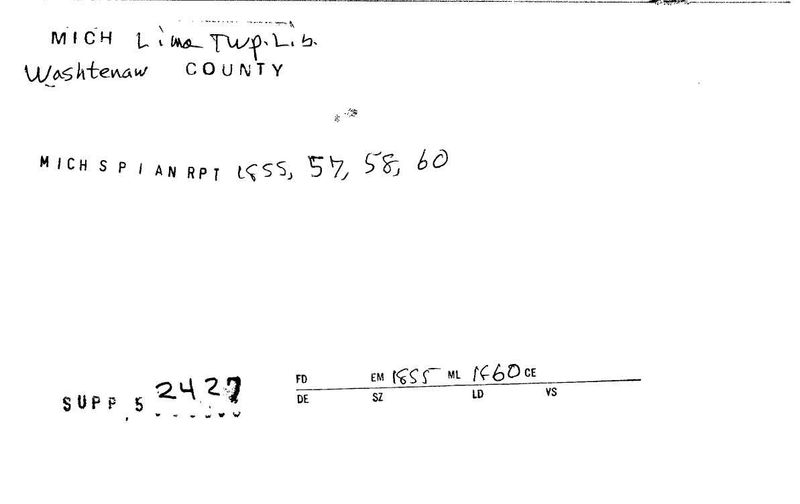 MICH Lima Twp. Lib.
Washtenaw COUNTY
MICH S P I AN RPT 1855, 57, 58, 60
SUPP 5 2427
FD EM 1855 ML 1860 CE
DE SZ LD VS